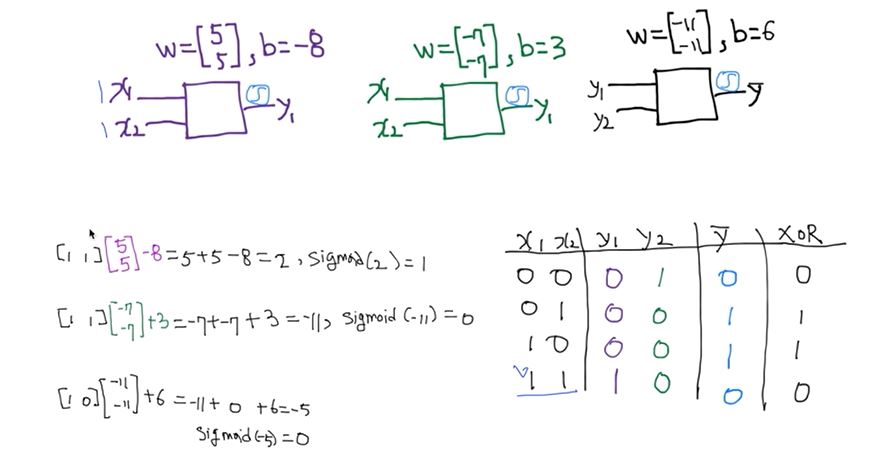 w=[5 5], b=-8
w=[-7 -7], b=3
w=[-11 -11], b=6
1 x1
1 x2
S
y1
x1
x2
S
y1
y1
y2
S
ȳ
[1 1][5 5]-8=5+5-8=2, sigmoid(2)=1
[1 1][-7 -7]+3=-7+-7+3=-11, sigmoid(-11)=0
[1 0][-11 -11]+6=-11+0+6=-5
sigmoid(-5)=0
x1 x2 y1 y2 ȳ XOR
0 0 0 1 0 0
0 1 0 0 1 1
1 0 0 0 1 1
1 1 1 0 0 0